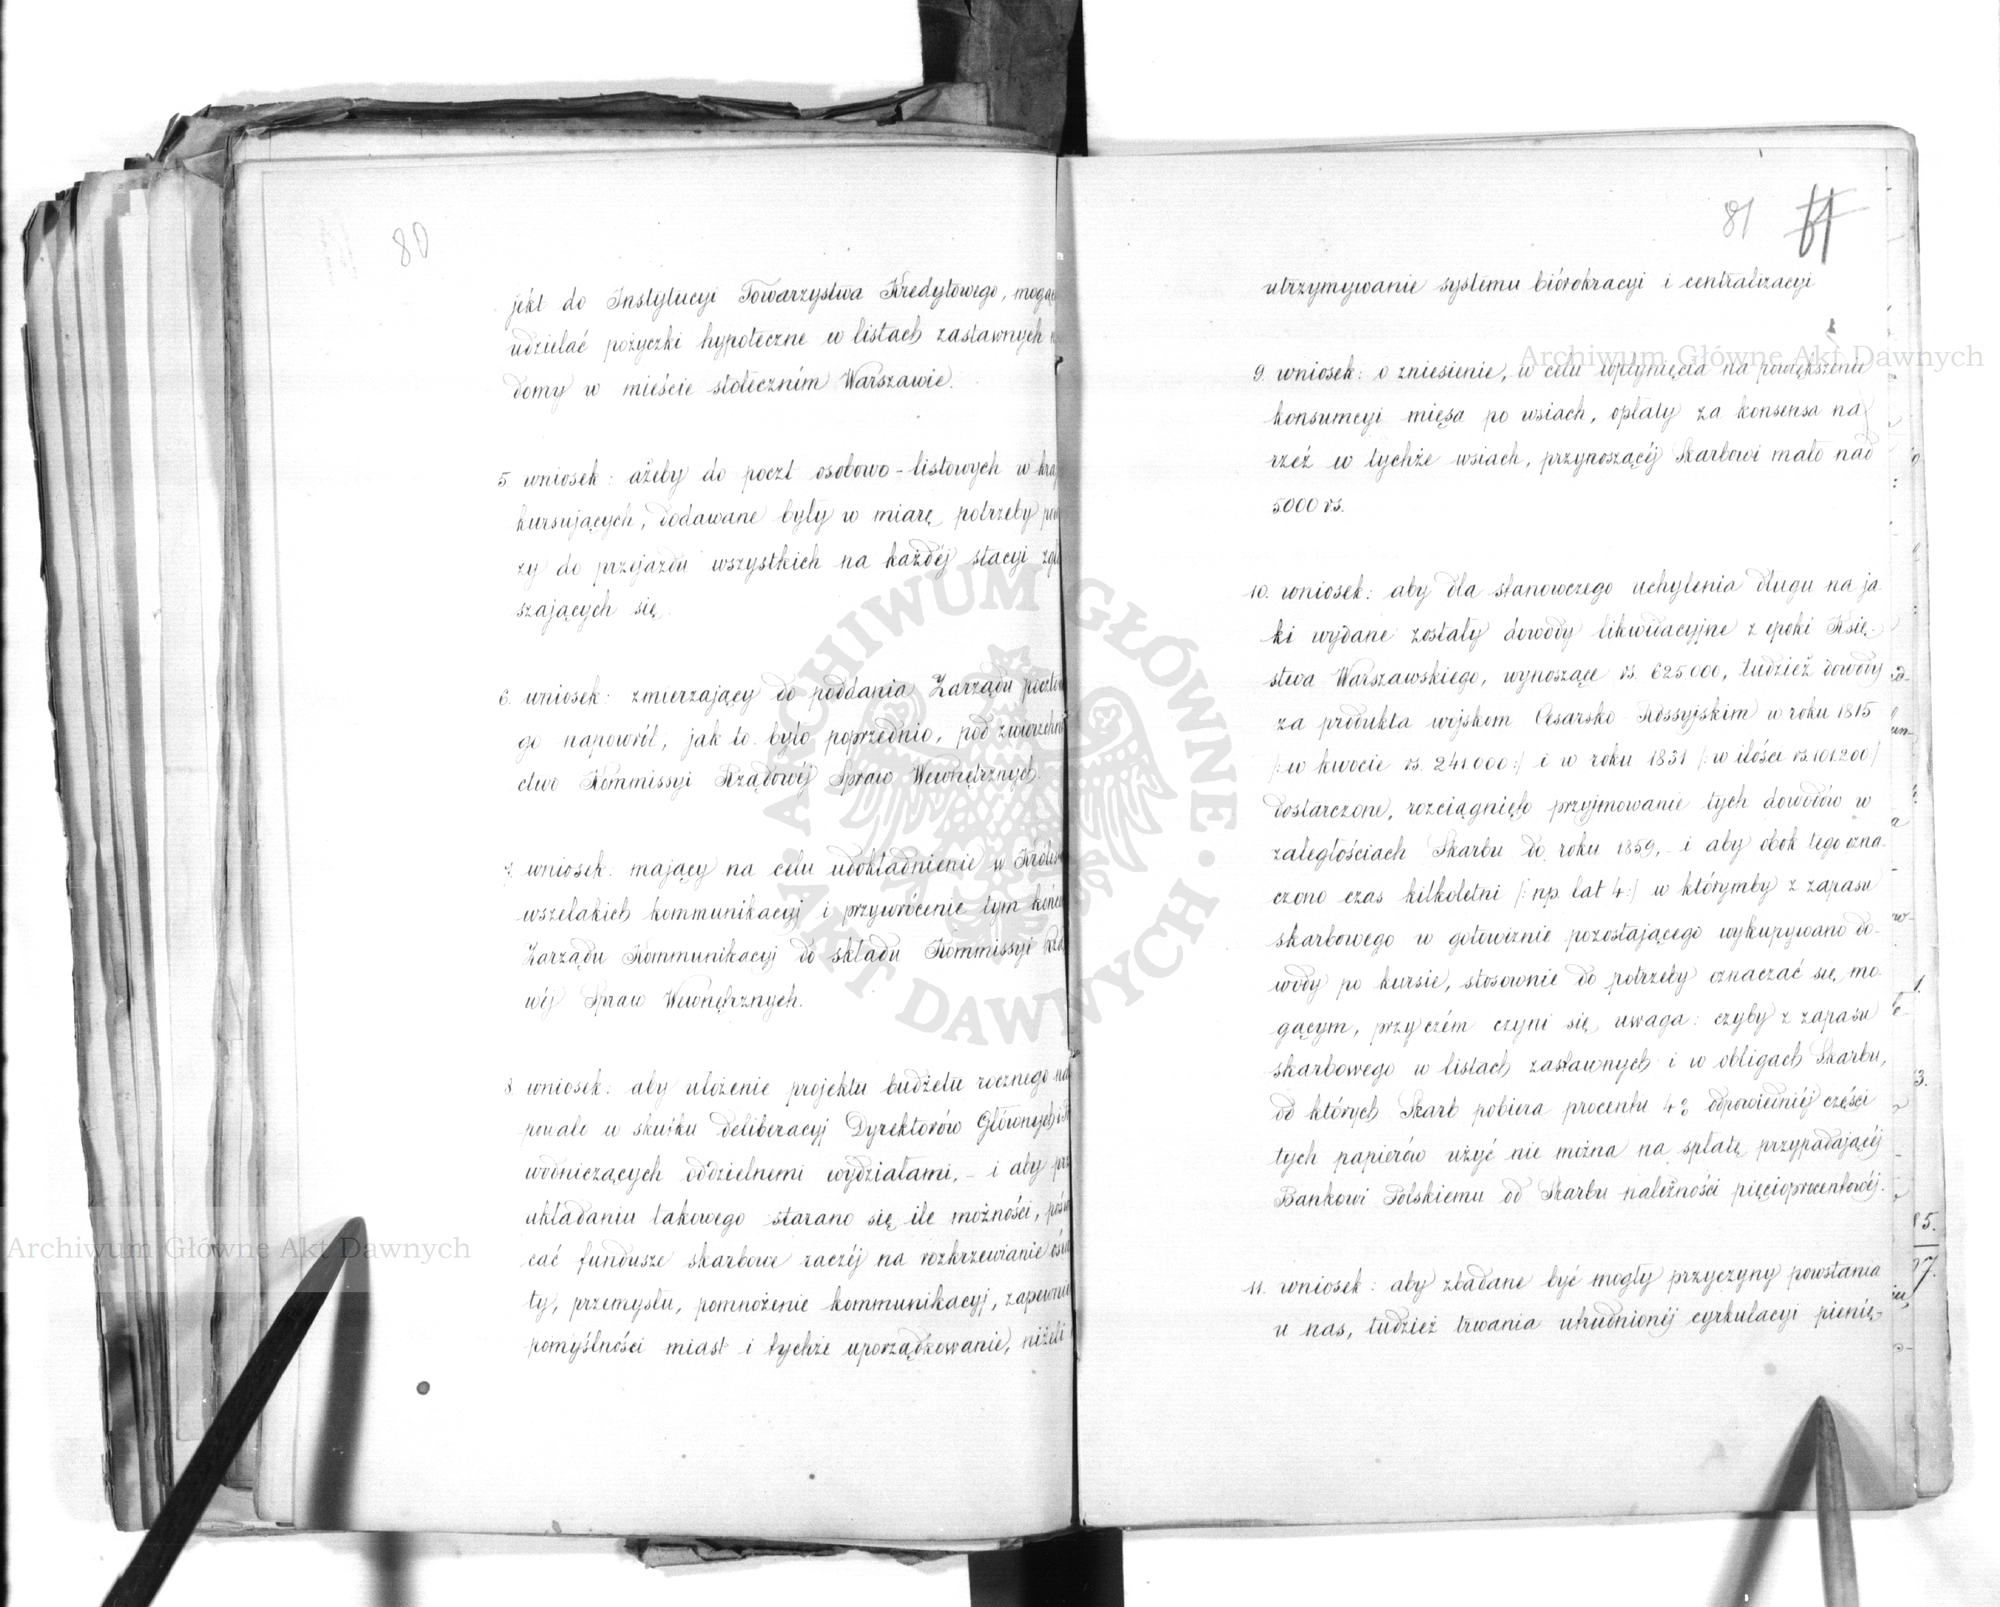 80
jekt do Instytucyi Towarzystwa Kredytowego, mogąc
udzielać pożyczki hypoteczne w listach zastawnych
domy w mieście stołecznem Warszawie.
5 wniosek: ażeby do poczt osobowo-listowych w kra
kursujących, dodawane były w miarę potrzeby
zy do przejazdu wszystkich na każdéj stacyi zgła
szających się.
6. wniosek: zmierzający do poddania Zarządu poczto
go napowrót, jak to było poprzednio, pod zwierzchni
ctwo Kommissyi Rządowéj Spraw Wewnętrznych.
7. wniosek: mający na celu udokładnienie w Króles
wszelakich kommunikacyj i przywrócenie tym końc
Zarządu Kommunikacyj do składu Kommissyi Rzą
wéj Spraw Wewnętrznych.
8 wniosek: aby ułożenie projektu budżetu rocznego na
powało w skutku deliberacyj Dyrektorów Głównych
wodniczących oddzielnemi wydziałami, - i aby prz
układaniu takowego starano się ile możności,
cać fundusze skarbowe raczéj na rozkrzewianie ośw
ty, przemysłu, pomnożenie kommunikacyj, zapewnie
pomyślności miast i tychże uporządkowanie, niżeli
81
utrzymywanie systemu biórokracyi i centralizacyi
9. wniosek: o zniesienie, w celu wpłynięcia na powiększenie
konsumcyi mięsa po wsiach, opłaty za konsensa na
rzeź w tychże wsiach, przynoszącéj Skarbowi mało nad
5000 rs.
10. wniosek: aby dla stanowczego uchylenia długu na ja
ki wydane zostały dowody likwidacyjne z epoki Księ-
stwa Warszawskiego, wynoszące rs. 625000, tudzież dowody
za produkta wojskom Cesarsko Rossyjskim w roku 1815
/: w kwocie rs. 241000 :/ i w roku 1831 /: w ilości rs. 101.200 /
dostarczone, rozciągnięto przyjmowanie tych dowodów w
zaległościach Skarbu do roku 1859, - i aby obok tego ozna-
czono czas kilkoletni /: np. lat 4 :/ w którymby z zapasu
skarbowego w gotowiznie pozostającego wykupywano do-
wody po kursie, stosownie do potrzeby oznaczać się mo-
gącym, przyczém czyni się uwaga: czyby z zapasu
skarbowego w listach zastawnych i w obligach Skarbu,
od których Skarb pobiera procentu 4% odpowiedniéj części
tych papierów użyć nie można na spłatę przypadającéj
Bankowi Polskiemu od Skarbu należności pięcioprocentowéj.
11. wniosek: aby zbadane być mogły przyczyny powstania
u nas, tudzież trwania utrudnionéj cyrkulacyi pienię-
Archiwum Główne Akt Dawnych
Archiwum Główne Akt Dawnych
ARCHIWUM GŁÓWNE • AKT DAWNYCH •